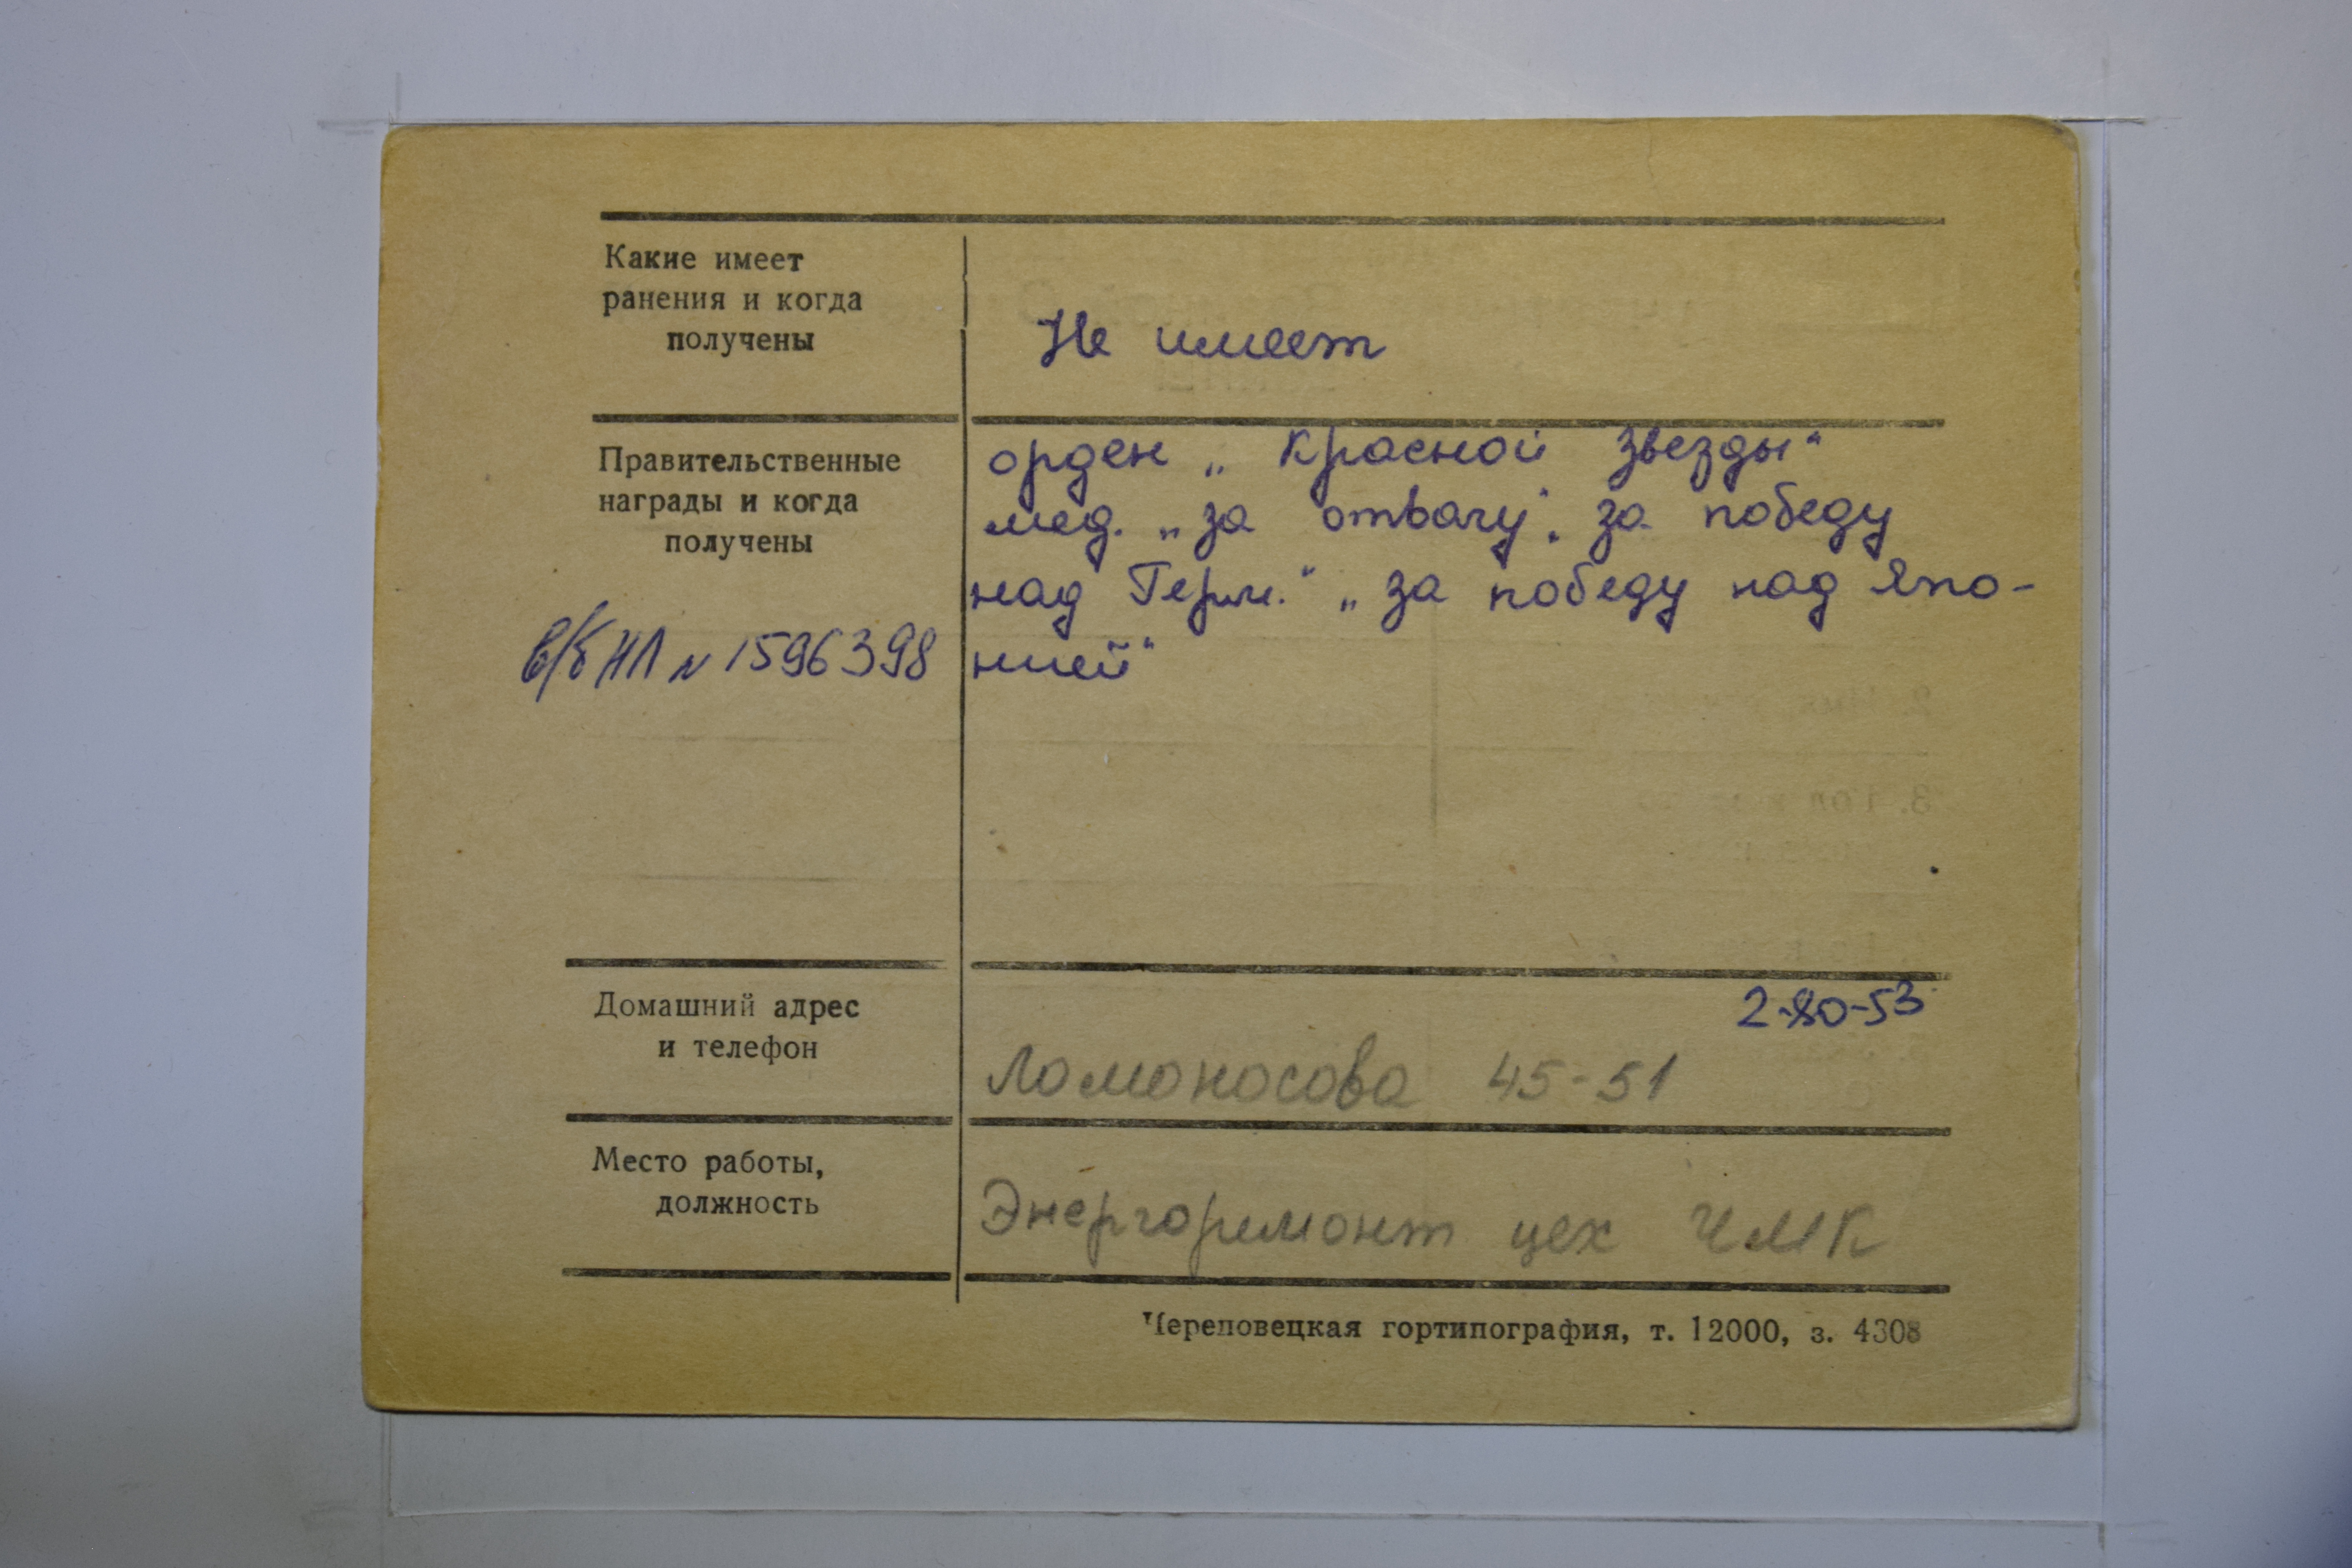 Какие имеет
ранения и когда
получены
Не имеет
Правительственные
награды и когда
получены
орден „Красной Звезды“
мед. „за отвагу“, за победу
над Герм.“ „за победу над Япо-
нией“
в/б НЛ № 1596398
Домашний адрес
и телефон
2-80-53
Ломоносова 45-51
Место работы,
должность
Энергоремонт цех ЧМК
Череповецкая гортипография, т. 12000, з. 4308